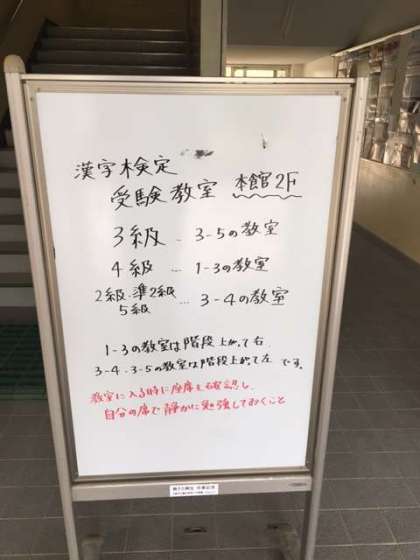 漢字検定
受験教室 本館2F
3級 … 3-5の教室
4級 … 1-3の教室
2級・準2級
5級 … 3-4の教室
1-3の教室は階段上がって右
3-4・3-5の教室は階段上がって左 です。
教室に入る時に座席を確認し、
自分の席で静かに勉強しておくこと